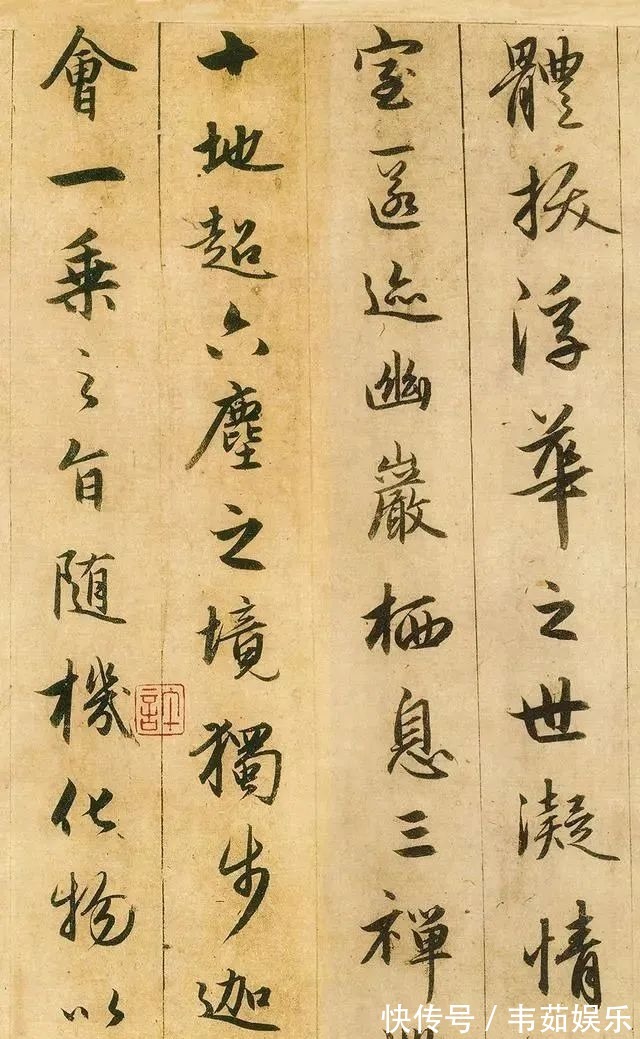 體拔浮華之世凝情
室匿迹幽巖栖息三禪
十地超六塵之境獨步迦
會一乘之旨随機化物以
許
快传号/韦茹娱乐